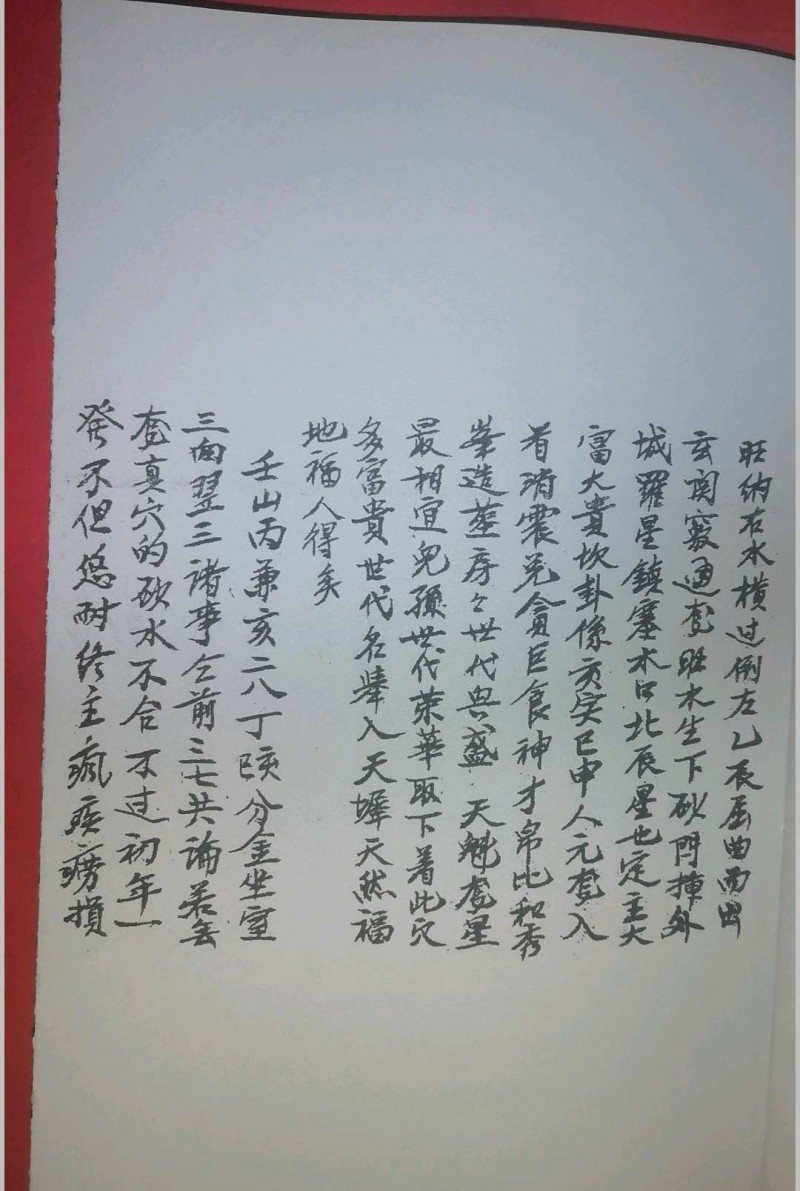 旺纳右水横过倒左乙辰屈曲而出
玄関竅通套旺水生下砂門揷外
城羅星鎮塞水口北辰星也定主大
富大貴坎卦像亥寅巳申人元套入
首消震兑貪巨食神才帛比和秀
峯造葬房々世代興盛天魁套星
最相宜兒孫世代荣華取下着此穴
多富貴世代名舉入天墀天然福
地福人得矣
壬山丙兼亥二八丁亥分金坐室
三向翌三諸事仝前三七共論若無
套真穴的砂水不合不过初年一
發不但怹耐終主瘋疾癆損